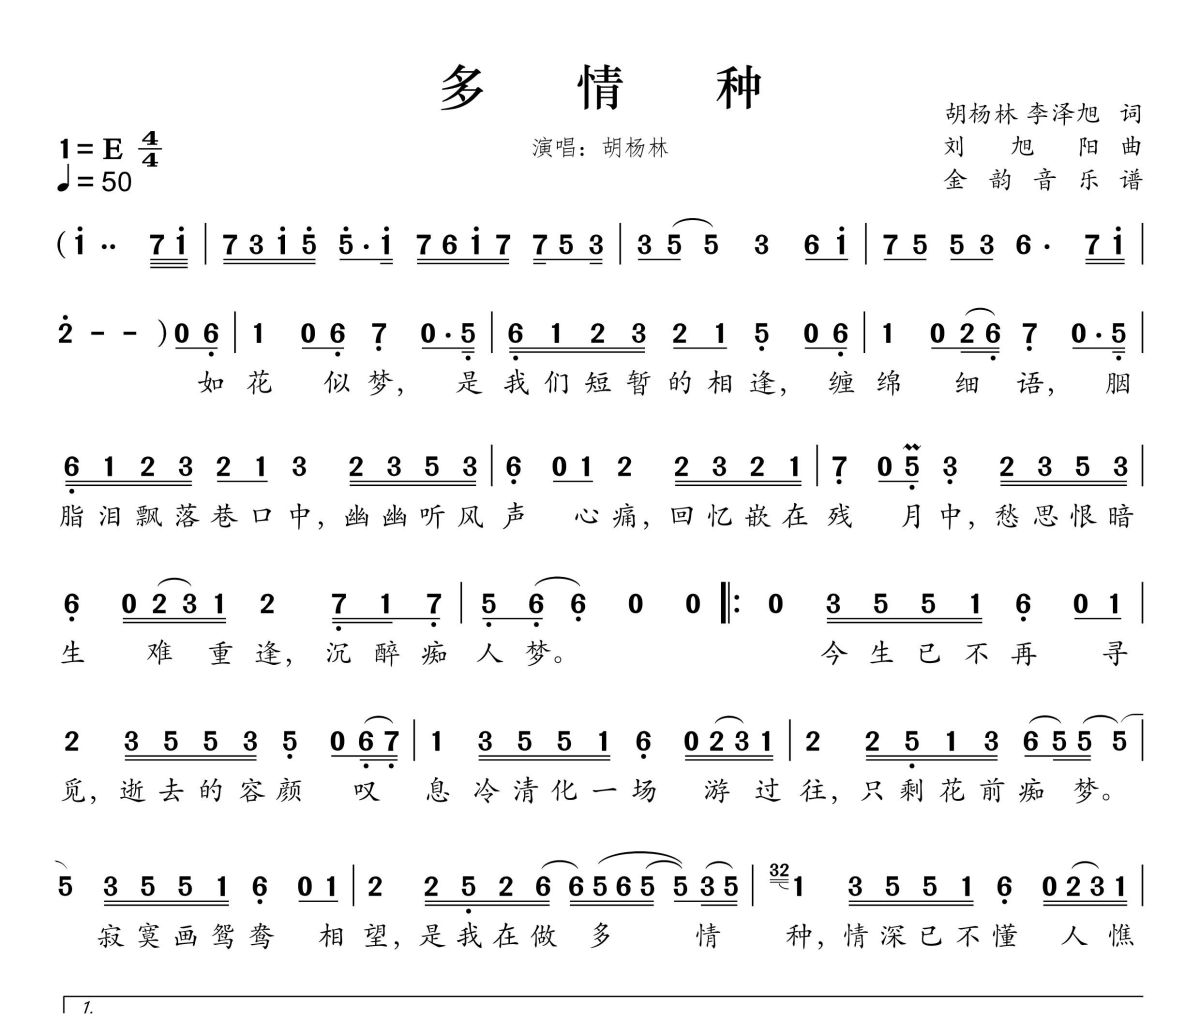 多 情 种
胡杨林 李泽旭 词
1= E 4/4
演唱：胡杨林
刘 旭 阳 曲
♩= 50
金 韵 音 乐 谱
( 1 ·· 7 1 | 7 3 1 5 5 · 1 7 6 1 7 7 5 3 | 3 5 5 3 6 1 | 7 5 5 3 6 · 7 1 |
2 - - ) 0 6 | 1 0 6 7 0 · 5 | 6 1 2 3 2 1 5 0 6 | 1 0 2 6 7 0 · 5 |
如 花 似 梦， 是 我 们 短 暂 的 相 逢， 缠 绵 细 语， 胭
6 1 2 3 2 1 3 2 3 5 3 | 6 0 1 2 2 3 2 1 | 7 0 5 3 2 3 5 3 |
脂 泪 飘 落 巷 口 中， 幽 幽 听 风 声 心 痛， 回 忆 嵌 在 残 月 中， 愁 思 恨 暗
6 0 2 3 1 2 7 1 7 | 5 6 6 0 0 ‖: 0 3 5 5 1 6 0 1 |
生 难 重 逢， 沉 醉 痴 人 梦。 今 生 已 不 再 寻
2 3 5 5 3 5 0 6 7 | 1 3 5 5 1 6 0 2 3 1 | 2 2 5 1 3 6 5 5 5 |
觅， 逝 去 的 容 颜 叹 息 冷 清 化 一 场 游 过 往， 只 剩 花 前 痴 梦。
5 3 5 5 1 6 0 1 | 2 2 5 2 6 6 5 6 5 5 3 5 | 32 1 3 5 5 1 6 0 2 3 1 |
寂 寞 画 鸳 鸯 相 望， 是 我 在 做 多 情 种， 情 深 已 不 懂 人 憔
1.